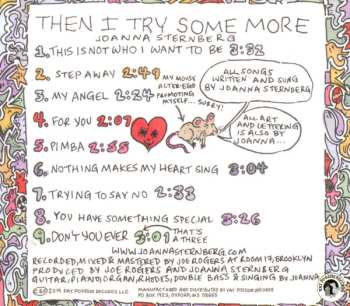 THEN I TRY SOME MORE
JOANNA STERNBERG
1. THIS IS NOT WHO I WANT TO BE 3:32
2. STEP AWAY 2:49
3. MY ANGEL 2:24
4. FOR YOU 2:07
5. PIMBA 2:55
6. NOTHING MAKES MY HEART SING 3:04
7. TRYING TO SAY NO 2:33
8. YOU HAVE SOMETHING SPECIAL 3:26
9. DON'T YOU EVER 3:01
THAT'S
A THREE
MY MOUSE
ALTER-EGO
PROMOTING
MYSELF... SORRY!
ALL SONGS
WRITTEN AND SUNG
BY JOANNA STERNBERG
ALL ART
AND LETTERING
IS ALSO BY
JOANNA...
WWW.JOANNASTERNBERG.COM
RECORDED, MIXED & MASTERED BY JOE ROGERS AT ROOM 17, BROOKLYN
PRODUCED BY JOE ROGERS AND JOANNA STERNBERG
GUITAR, PIANO, ORGAN, RHODES, DOUBLE BASS & SINGING BY JOANNA
MANUFACTURED AND DISTRIBUTED BY FAT POSSUM RECORDS